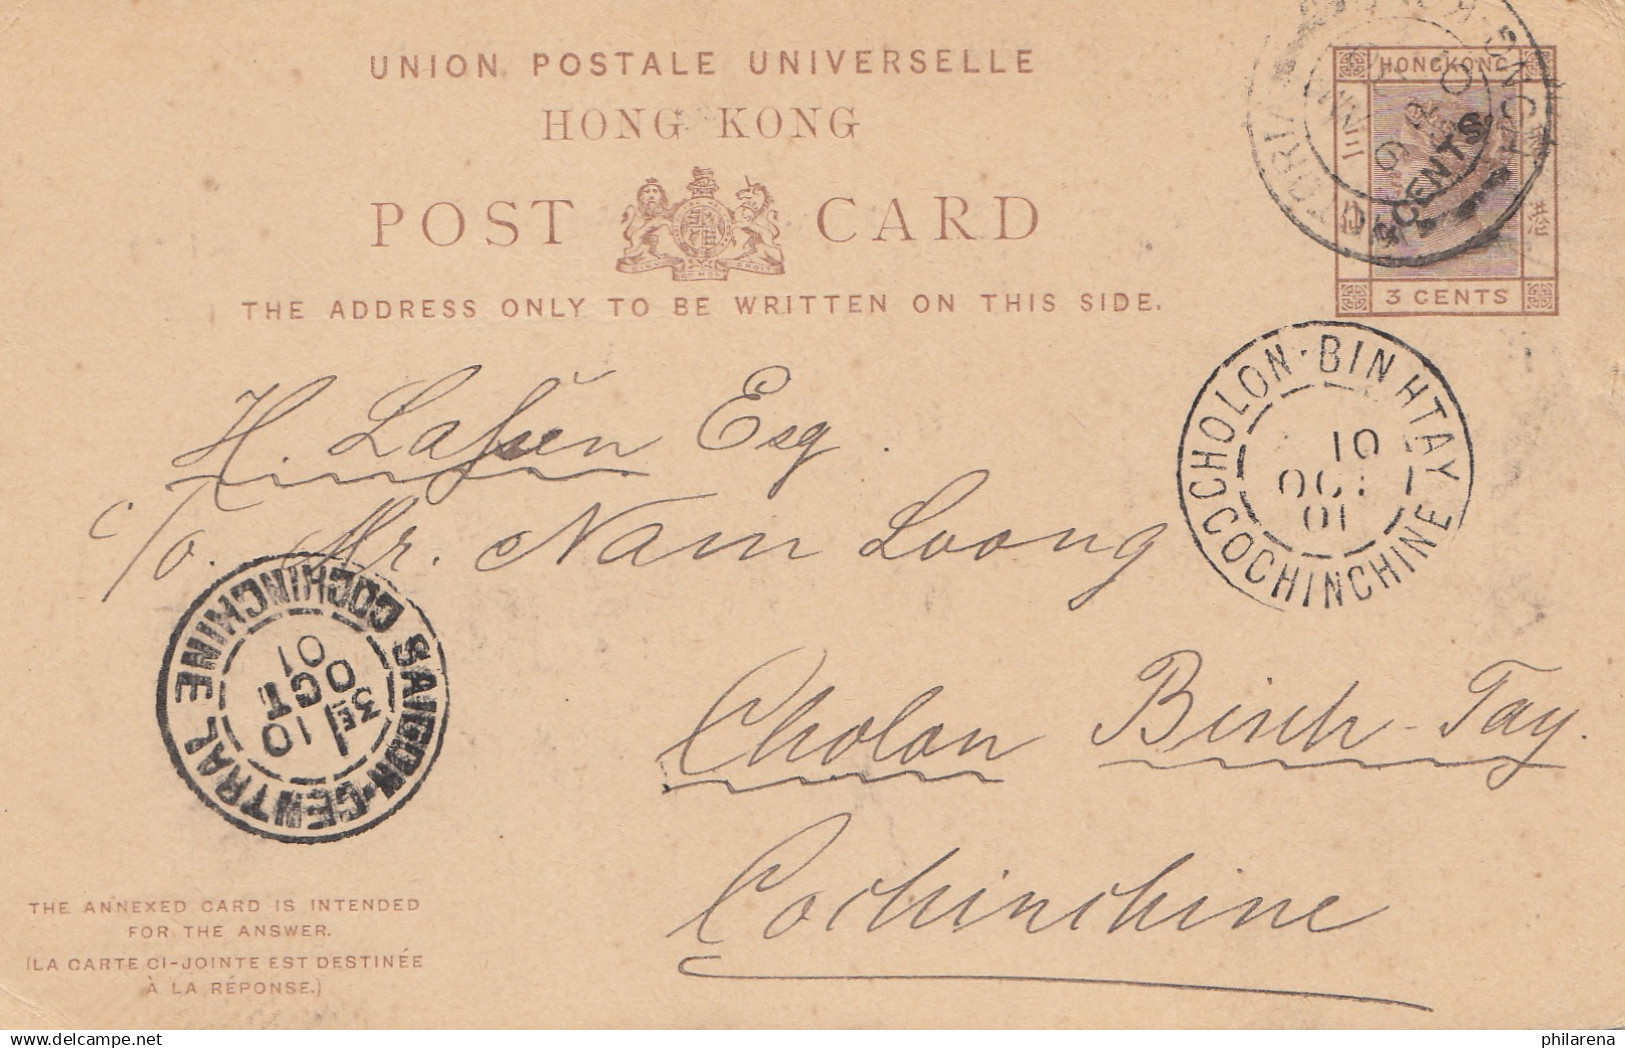 UNION POSTALE UNIVERSELLE
HONG KONG
POST CARD
THE ADDRESS ONLY TO BE WRITTEN ON THIS SIDE.
HONGKONG
4 CENTS.
3 CENTS
港
H. Esq.
c/o. Mr. Nam Loong
Cholon Binh-Tay.
Cochinchine
CHOLON-BINHTAY
10
OCT
01
COCHINCHINE
SAIGON-CENTRAL COCHINCHINE
3E
10
OCT
01
THE ANNEXED CARD IS INTENDED
FOR THE ANSWER.
(LA CARTE CI-JOINTE EST DESTINÉE
À LA RÉPONSE.)
philarena